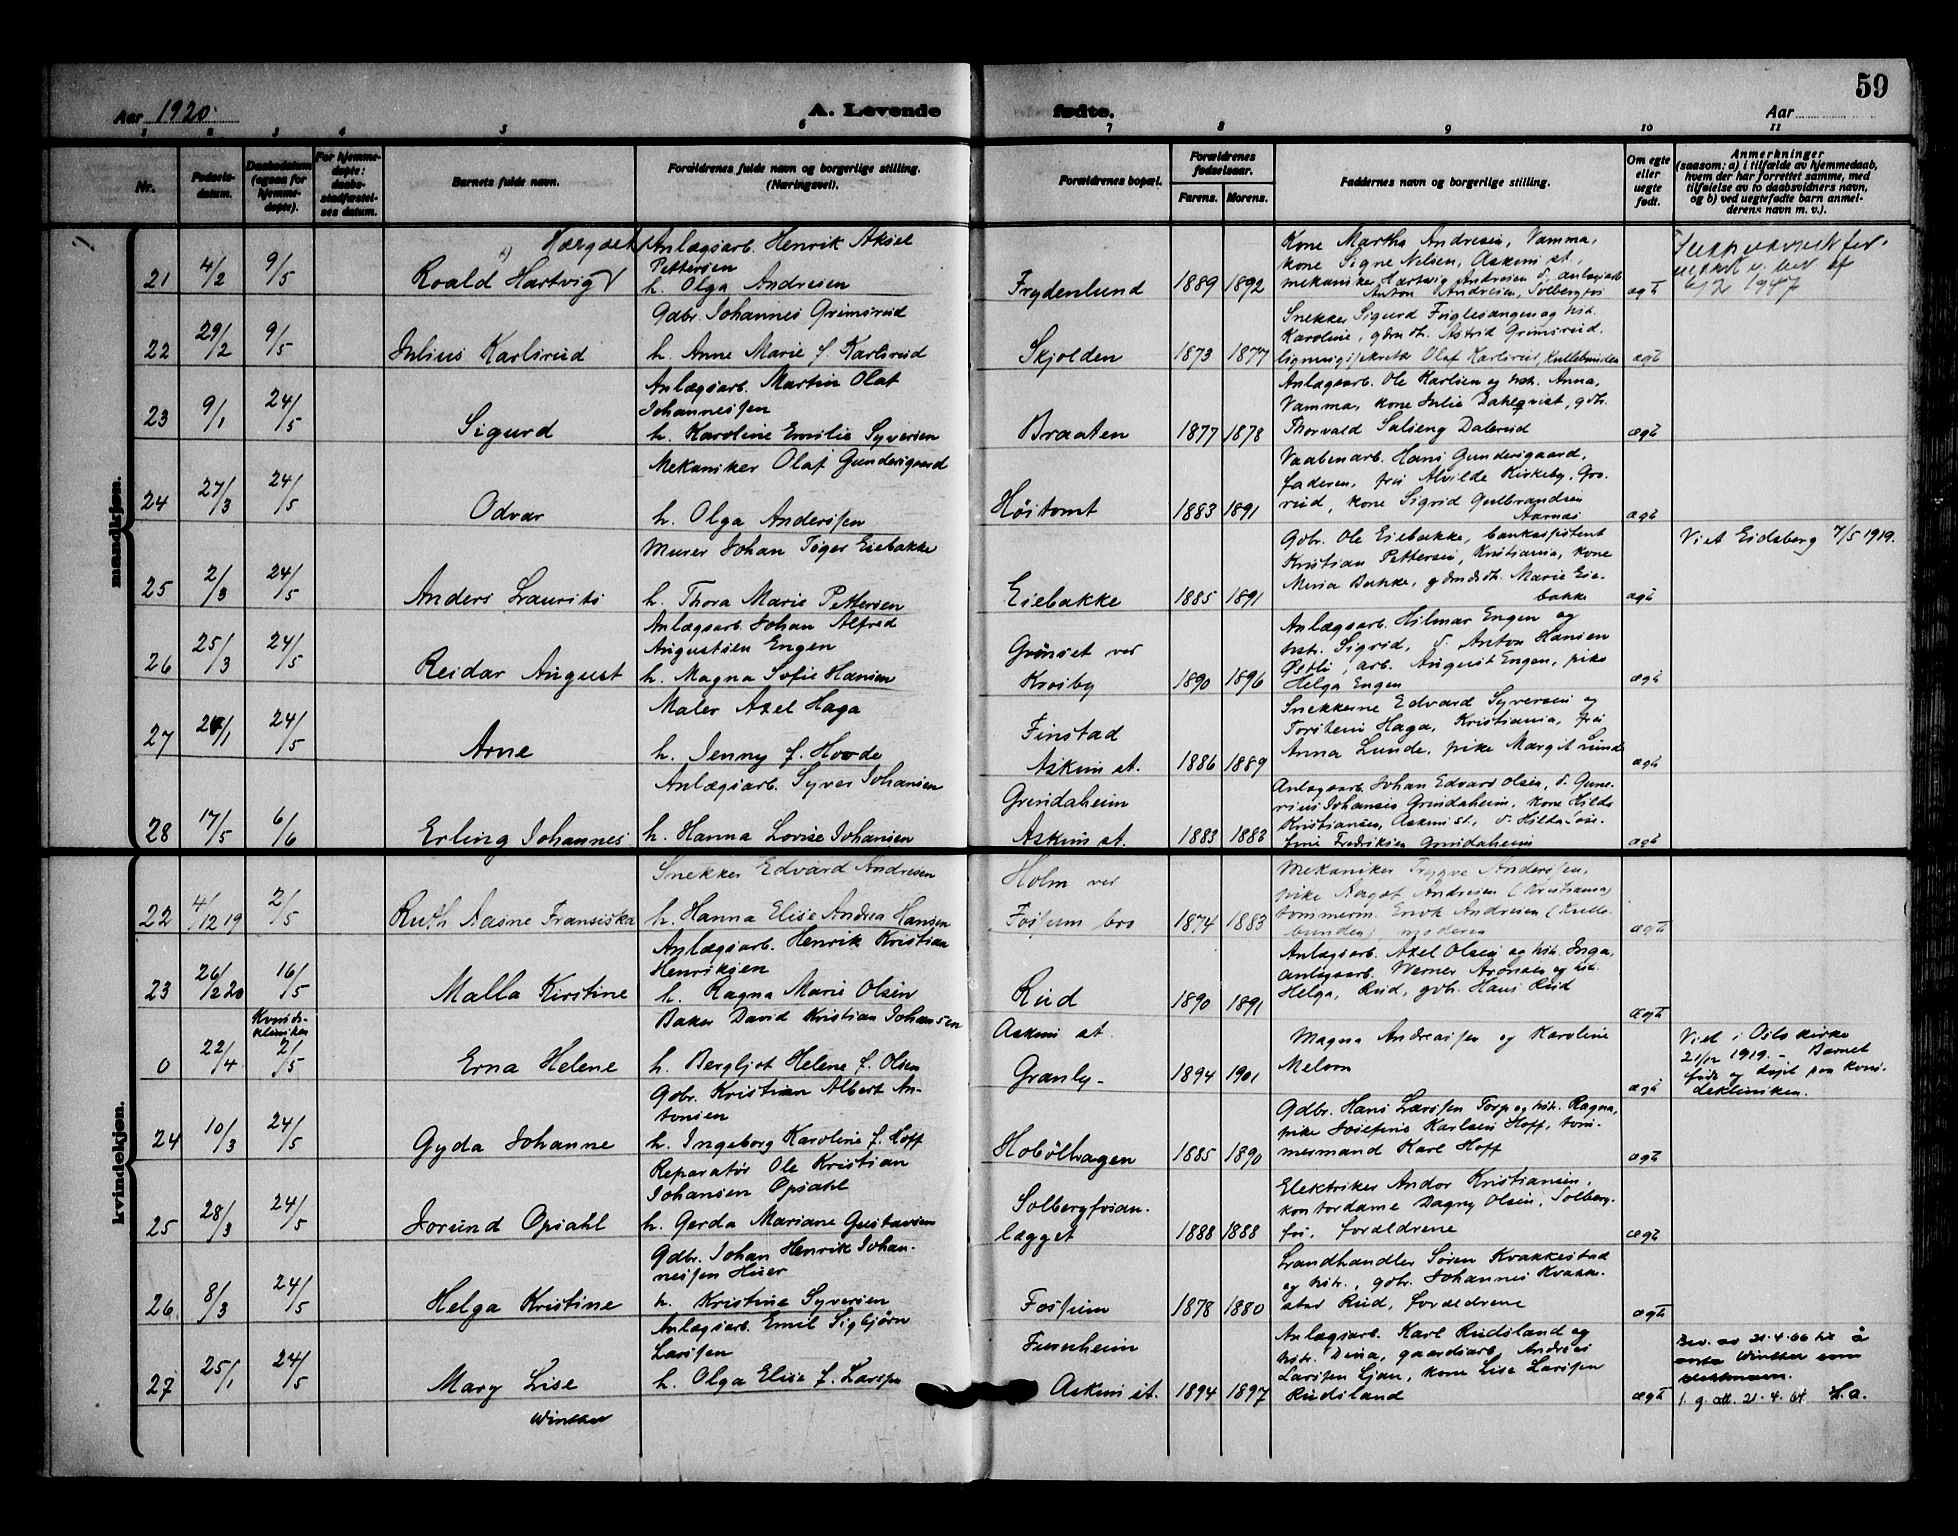 59
Aar 1920.
A. Levende
fødte.
Aar
1 2 3 4 5 6 7 8 9 10 11
Nr.
Fødsels-
datum.
Daabsdatum
(ogsaa for
hjemme-
døpte).
For hjemme-
døpte:
daabs-
stadfæstel-
ses datum.
Barnets fulde navn.
Forældrenes fulde navn og borgerlige stilling.
(Næringsvei).
Forældrenes bopæl.
Forældrenes
fødselsaar.
Farens. Morens.
Faddernes navn og borgerlige stilling.
Om egte
eller
uegte
født.
Anmerkninger
(saasom: a) i tilfælde av hjemmedaab,
hvem der har forrettet samme, med
tilføielse av to daabsvidners navn,
og b) ved uegtefødte barn anmel-
derens navn m. v.).
mandkjøn.
21 4/2 9/5 Roald Hartvig
Anlægsarb. Henrik Aksel
Pettersen
h. Olga Andresen
Frydenlund 1889 1892
Kone Martha Andresen, Vamma,
kone Signe Nilsen, Askim st.,
mekaniker Hartvig Andresen, anlægsarb.
Anton Andresen, Solbergfos
ægte
6/2 1947
22 29/2 9/5 Julius Karlsrud
Gdbr. Johannes Grimsrud
h. Anne Marie f. Karlsrud
Skjolden 1873 1877
Snekker Sigurd Fuglesangen og hst.
Karoline, gdm dt. Astrid Grimsrud.
Olaf Karlsrud, Kullebunden
ægte
23 9/1 24/5 Sigurd
Anlægsarb. Martin Olaf
Johannessen
h. Karoline Emilie Syversen
Braaten 1877 1878
Anlægsarb. Ole Karlsen og hst. Anna,
Vamma, kone Julie Dahlqvist, gdt.
Thorvald Dalerud
ægte
24 27/3 24/5 Odvar
Mekaniker Olaf Gundersgaard
h. Olga Anderssen
Høitomt 1883 1891
Vaabenarb. Hans Gundersgaard,
faderen, frk Alvilde Kirkeby, Gro-
rud, kone Sigrid Gulbrandsen
Aarnes
ægte
25 2/3 24/5 Anders Laurits
Murer Johan Eiebakke
h. Thora Marie Pettersen
Eiebakke 1885 1891
Gdbr. Ole Eiebakke, bankassistent
Kristian Pettersen, Kristiania, kone
Bakke, gdmdt. Marie Eie-
bakke
ægte
Viet Eidsberg 7/5 1919.
26 25/3 24/5 Reidar August
Anlægsarb. Johan Alfred
Augustsen Engen
h. Magna Sofie Hansen
Grønset ver
Kroiby 1890 1896
Anlægsarb. Hilmar Engen og
hst. Sigrid, Anton Hansen
Østli, arb. August Engen, pike
Helga Engen
ægte
27 24/5 Arne
Maler Axel Haga
h. Jenny f. Hovde
Finstad
Askim st. 1886 1889
Snekkerne Edvard Syversen og
Torstein Haga, Kristiania, frk
Anna Lunde, pike Margit Lund
ægte
28 17/5 6/6 Erling Johannes
Anlægsarb. Syver Johansen
h. Hanna Lovise Johansen
Grindaheim
Askim st. 1883 1883
Anlægsarb. Johan Edvard Olsen, Gune-
rius Johansen Grindaheim, kone Hilda
Kristiansen, Askim st., Hilda Jose-
fine Fredriksen Grindaheim
ægte
kvindekjøn.
22 4/12 19 2/5 Ruth Aasne Fransiska
Snekker Edvard Andresen
h. Hanna Elise Andrea Hansen
Holm ver
Fossum bro 1874 1883
Mekaniker Trygve Anderssen,
pike Aagot Andresen (Kristiania)
tømmerm. Andresen (Kulle-
bunden) moderen
ægte
23 26/2 20 16/5 Malla Kirstine
Anlægsarb. Henrik Kristian
Henriksen
h. Ragna Marie Olsen
Rud 1890 1891
Anlægsarb. Axel Olsen og hst. Inga,
anlægsarb. Werner Aronsen og hst.
Helga, Rud, gbr. Hans Rud
ægte
0 22/4 Kvinde-
klinikken
2/5 Erna Helene
Baker David Kristian Johansen
h. Bergljot Helene f. Olsen
Askim st.
Granly- 1894 1901
Magna Andreassen og Karoline
Melvom
ægte
Viet i Oslo kirke
21/12 1919. - Barnet
født og døpt paa kvin-
deklinikken.
24 10/3 24/5 Gyda Johanne
Gdbr. Kristian Albert An-
tonsen
h. Ingeborg Karoline f. Hoff
Hobølhagen 1885 1890
Gdbr. Hans Larssen Torp og hst. Ragna,
pike Josefine Karlsen Hoff, tøm-
mermand Karl Hoff
ægte
25 28/3 24/5 Jorund Opsahl
Reparatør Ole Kristian
Johansen Opsahl
h. Gerda Mariane Gustavsen
Solbergfosan-
lægget 1888 1888
Elektriker Andor Kristiansen,
kontordame Dagny Olsen, Solberg-
fos, forældrene
ægte
26 8/3 24/5 Helga Kristine
Gdbr. Johan Henrik Johan-
nessen Huer
h. Kristine Syversen
Fossum 1878 1880
Landhandler Søren Kvakkestad
og hst., gbr. Johannes Kvakke-
stad Rud, forældrene
ægte
27 25/1 24/5 Mary Lise
Winther
Anlægsarb. Emil Sigbjørn
Larssen
h. Olga Elise f. Larssen
Furuheim
Askim st. 1894 1897
Anlægsarb. Karl Rudsland og
hst. Dina, gaardsarb. Andreas
Larssen Ljan, kone Lise Larssen
Rudsland
ægte
Bev. av 21.4.66 til å
anta Winther som
slektsnavn.